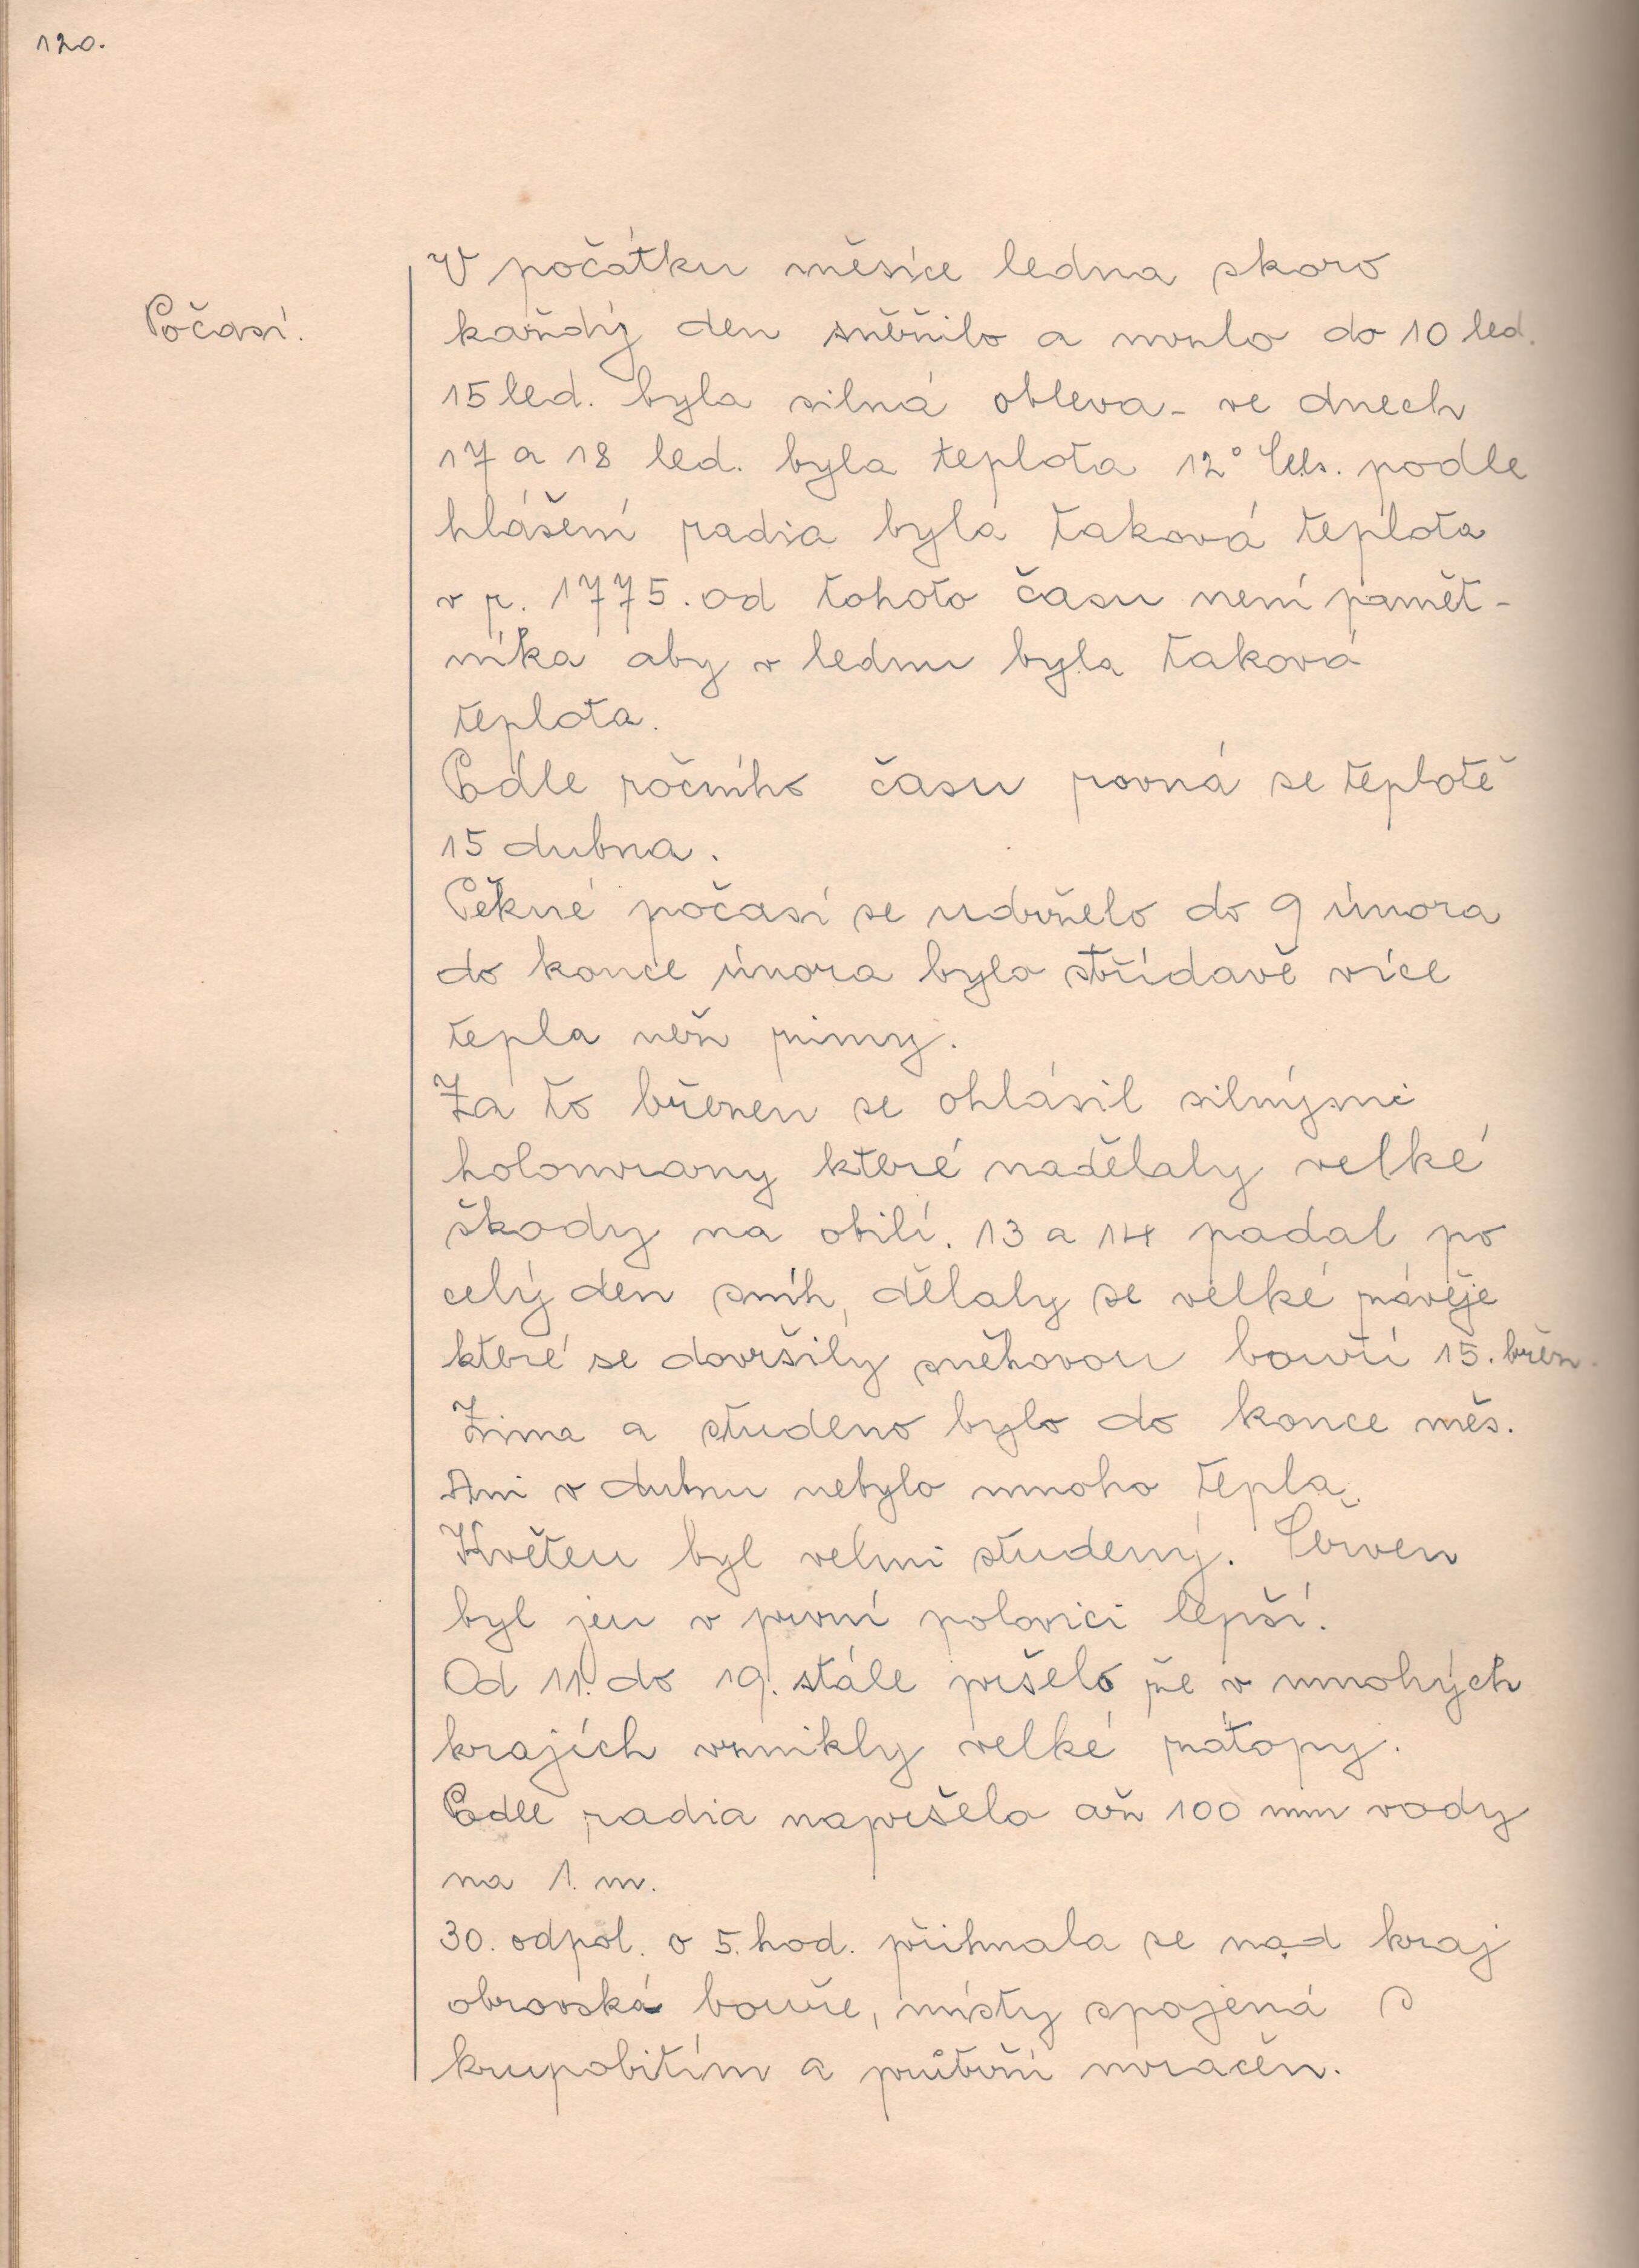 120.
Počasí.
V počátku měsíce ledna skoro
každý den sněžilo a mrzlo do 10 led.
15 led. byla silná obleva - ve dnech
17 a 18 led. byla teplota 12° Cels. podle
hlášení radia byla taková teplota
v r. 1775. od tohoto času není pamět-
níka aby v lednu byla taková
teplota.
Podle ročního času rovná se teplotě
15 dubna.
Pěkné počasí se udrželo do 9 února
do konce února bylo střídavě více
tepla než zimy.
Za to březen se ohlásil silnými
holomrazy které nadělaly velké
škody na obilí. 13 a 14 padal po
celý den sníh, dělaly se velké závěje
které se dovršily sněhovou bouří 15. břez.
Zima a studeno bylo do konce měs.
Ani v dubnu nebylo mnoho tepla.
Květen byl velmi studený. Červen
byl jen v první polovici lepší.
Od 11. do 19. stále pršelo že v mnohých
krajích vznikly velké zátopy.
Podle radia napršelo až 100 mm vody
na 1. m.
30. odpol. o 5. hod. přihnala se nad kraj
obrovská bouře, místy spojená s
krupobitím a průtrží mračen.